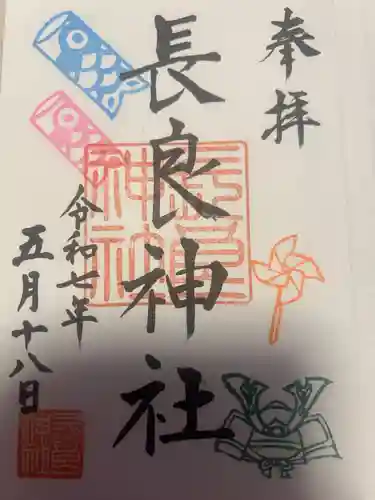 奉拝
長良神社
令和七年
五月十八日
長良神社
長良神社